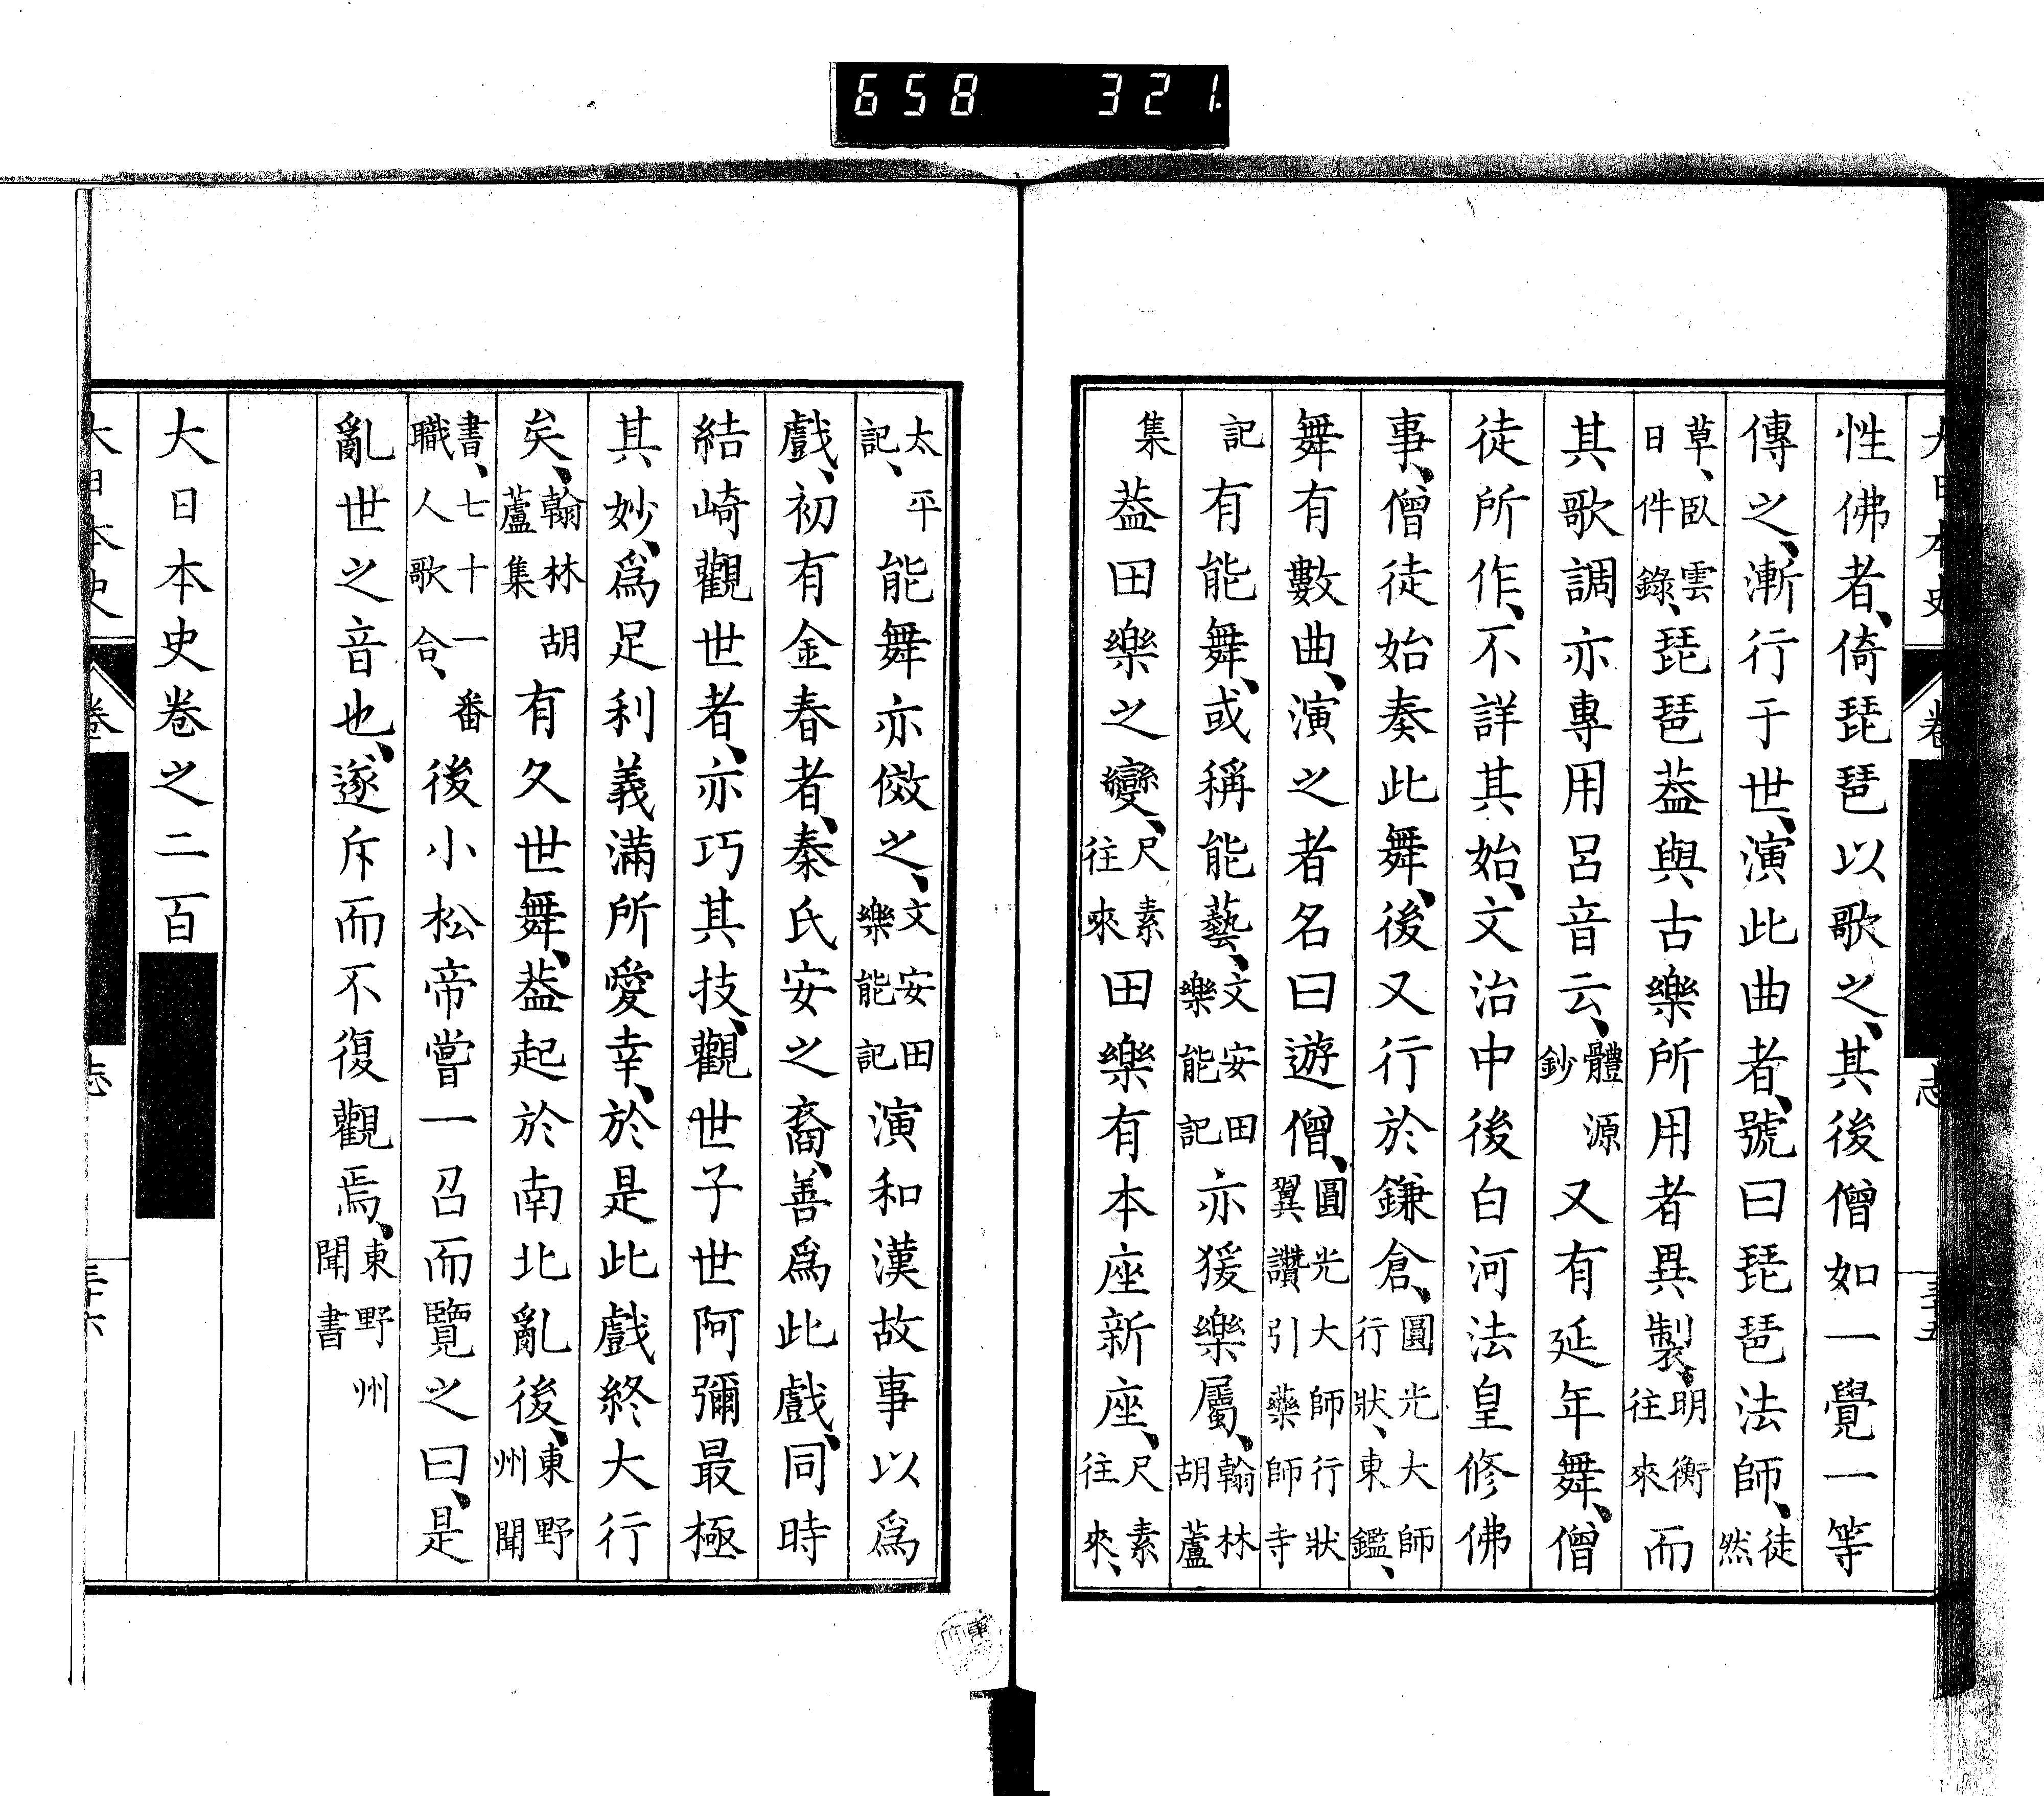 658 321
大日本史 卷 志 三十五
性佛者、倚琵琶以歌之、其後僧如一覺一等
傳之、漸行于世、演此曲者、號曰琵琶法師、徒然
草、臥雲日件錄、琵琶葢與古樂所用者異製、明衡往來而
其歌調亦專用呂音云、體源鈔又有延年舞、僧
徒所作、不詳其始、文治中後白河法皇修佛
事、僧徒始奏此舞、後又行於鎌倉、圓光大師行狀、東鑑、
舞有數曲、演之者名曰遊僧、圓光大師行狀翼讚引藥師寺
記有能舞、或稱能藝、文安田樂能記亦猨樂屬、翰林胡蘆
集葢田樂之變、尺素往來田樂有本座新座、尺素往來、
太平記、能舞亦倣之、文安田樂能記演和漢故事以爲
戲、初有金春者、秦氏安之裔、善爲此戲、同時
結崎觀世者、亦巧其技、觀世子世阿彌最極
其妙、爲足利義滿所愛幸、於是此戲終大行
矣、翰林胡蘆集有久世舞、葢起於南北亂後、東野州聞
書、七十一番職人歌合、後小松帝嘗一召而覽之曰、是
亂世之音也、遂斥而不復觀焉、東野州聞書
大日本史卷之二百
大日本史 卷 志 三十六